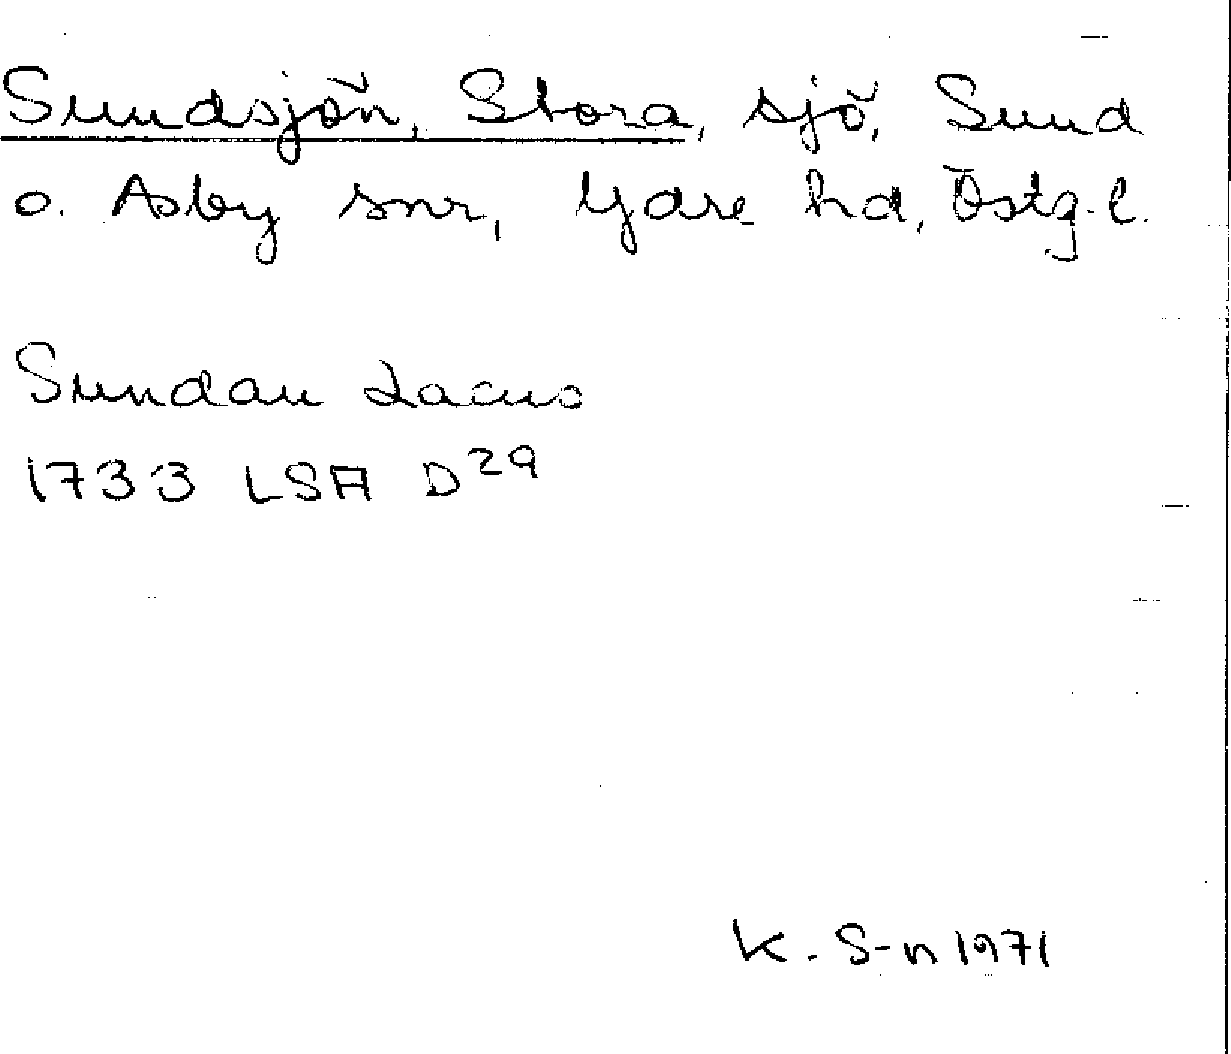 Sundsjön, Stora, sjö, Sund
o. Asby snr, Ydre hd, Östg. l.
Sundau Lacus
1733 LSA D29
K. S-n 1971